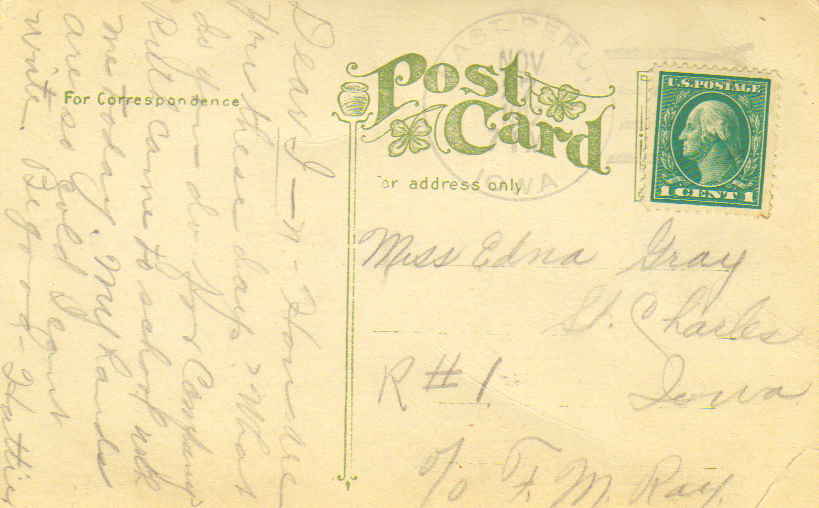 For Correspondence
Post
Card
For address only
EAST PERU,
NOV
IOWA
U.S. POSTAGE
1 CENT 1
Miss Edna Gray
St. Charles
R#1 Iowa
c/o F. M. Ray.
Dear I — n - How are
you these days? What
do you do for Company
Ruth came to school with
me today. My hands
are so cold I cant
write. Be good - Hattie